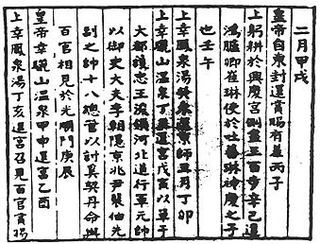 二月甲戌
皇帝自東封還賞賜有差丙子
上躬耕於興慶宮側盡三百步辛巳遣
鴻臚卿崔琳使於吐蕃琳神慶之子
也壬午
上幸鳳泉湯癸未還京師丑月丁卯
上幸驪山溫泉丁亥還宮戊寅以單于
大都護忠王浚領河北道行軍元帥
以御史大夫李朝隱京兆尹裴伷先
副之帥十八總管以討奚契丹命與
百官相見於光順門庚辰
皇帝幸驪山溫泉甲申還宮乙酉
上幸鳳泉湯丁亥還宮召見百官賞賜